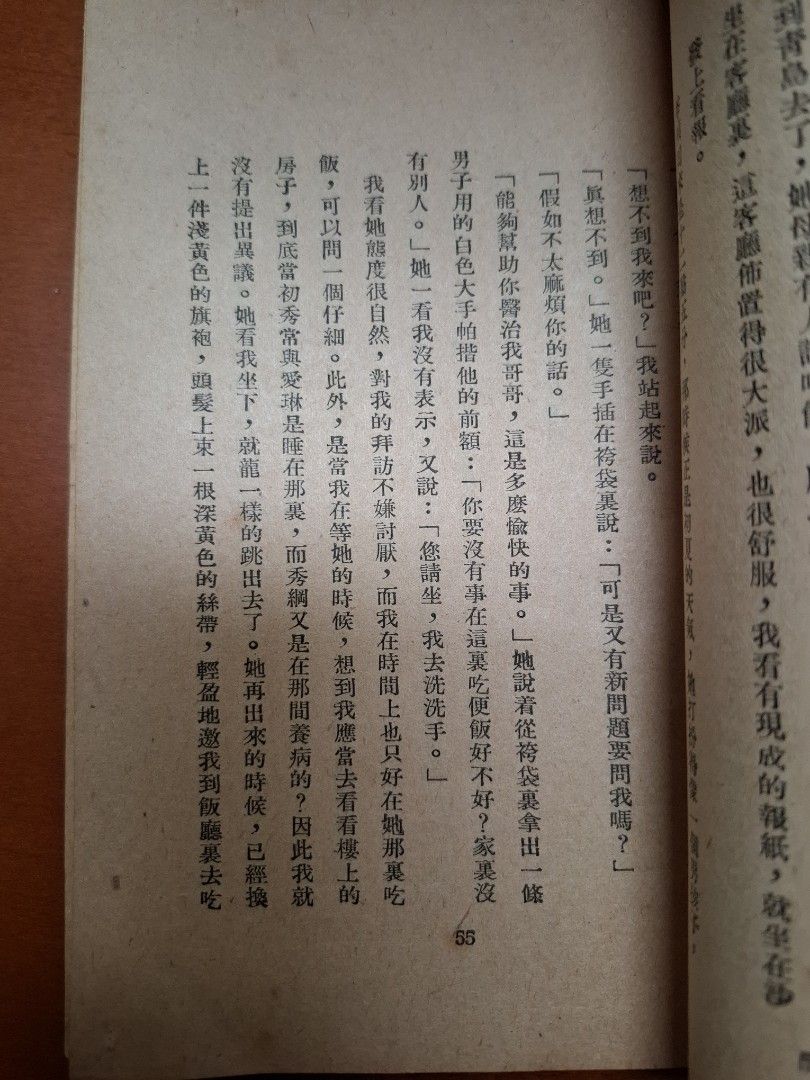 到青鳥去了，她
坐在客廳裏，這客廳佈置得很大派，也很舒服，我看有現成的報紙，就坐在沙
上看報。
正是初夏的天氣，她打
「想不到我來吧？」我站起來說。
「眞想不到。」她一隻手插在袴袋裏說：「可是又有新問題要問我嗎？」
「假如不太麻煩你的話。」
「能夠幫助你醫治我哥哥，這是多麽愉快的事。」她說着從袴袋裏拿出一條
男子用的白色大手帕揩他的前額：「你要沒有事在這裏吃便飯好不好？家裏沒
有別人。」她一看我沒有表示，又說：「您請坐，我去洗洗手。」
我看她態度很自然，對我的拜訪不嫌討厭，而我在時間上也只好在她那裏吃
飯，可以問一個仔細。此外，是當我在等她的時候，想到我應當去看看樓上的
房子，到底當初秀常與愛琳是睡在那裏，而秀綱又是在那間養病的？因此我就
沒有提出異議。她看我坐下，就龍一樣的跳出去了。她再出來的時候，已經換
上一件淺黃色的旗袍，頭髮上束一根深黃色的絲帶，輕盈地邀我到飯廳裏去吃
55